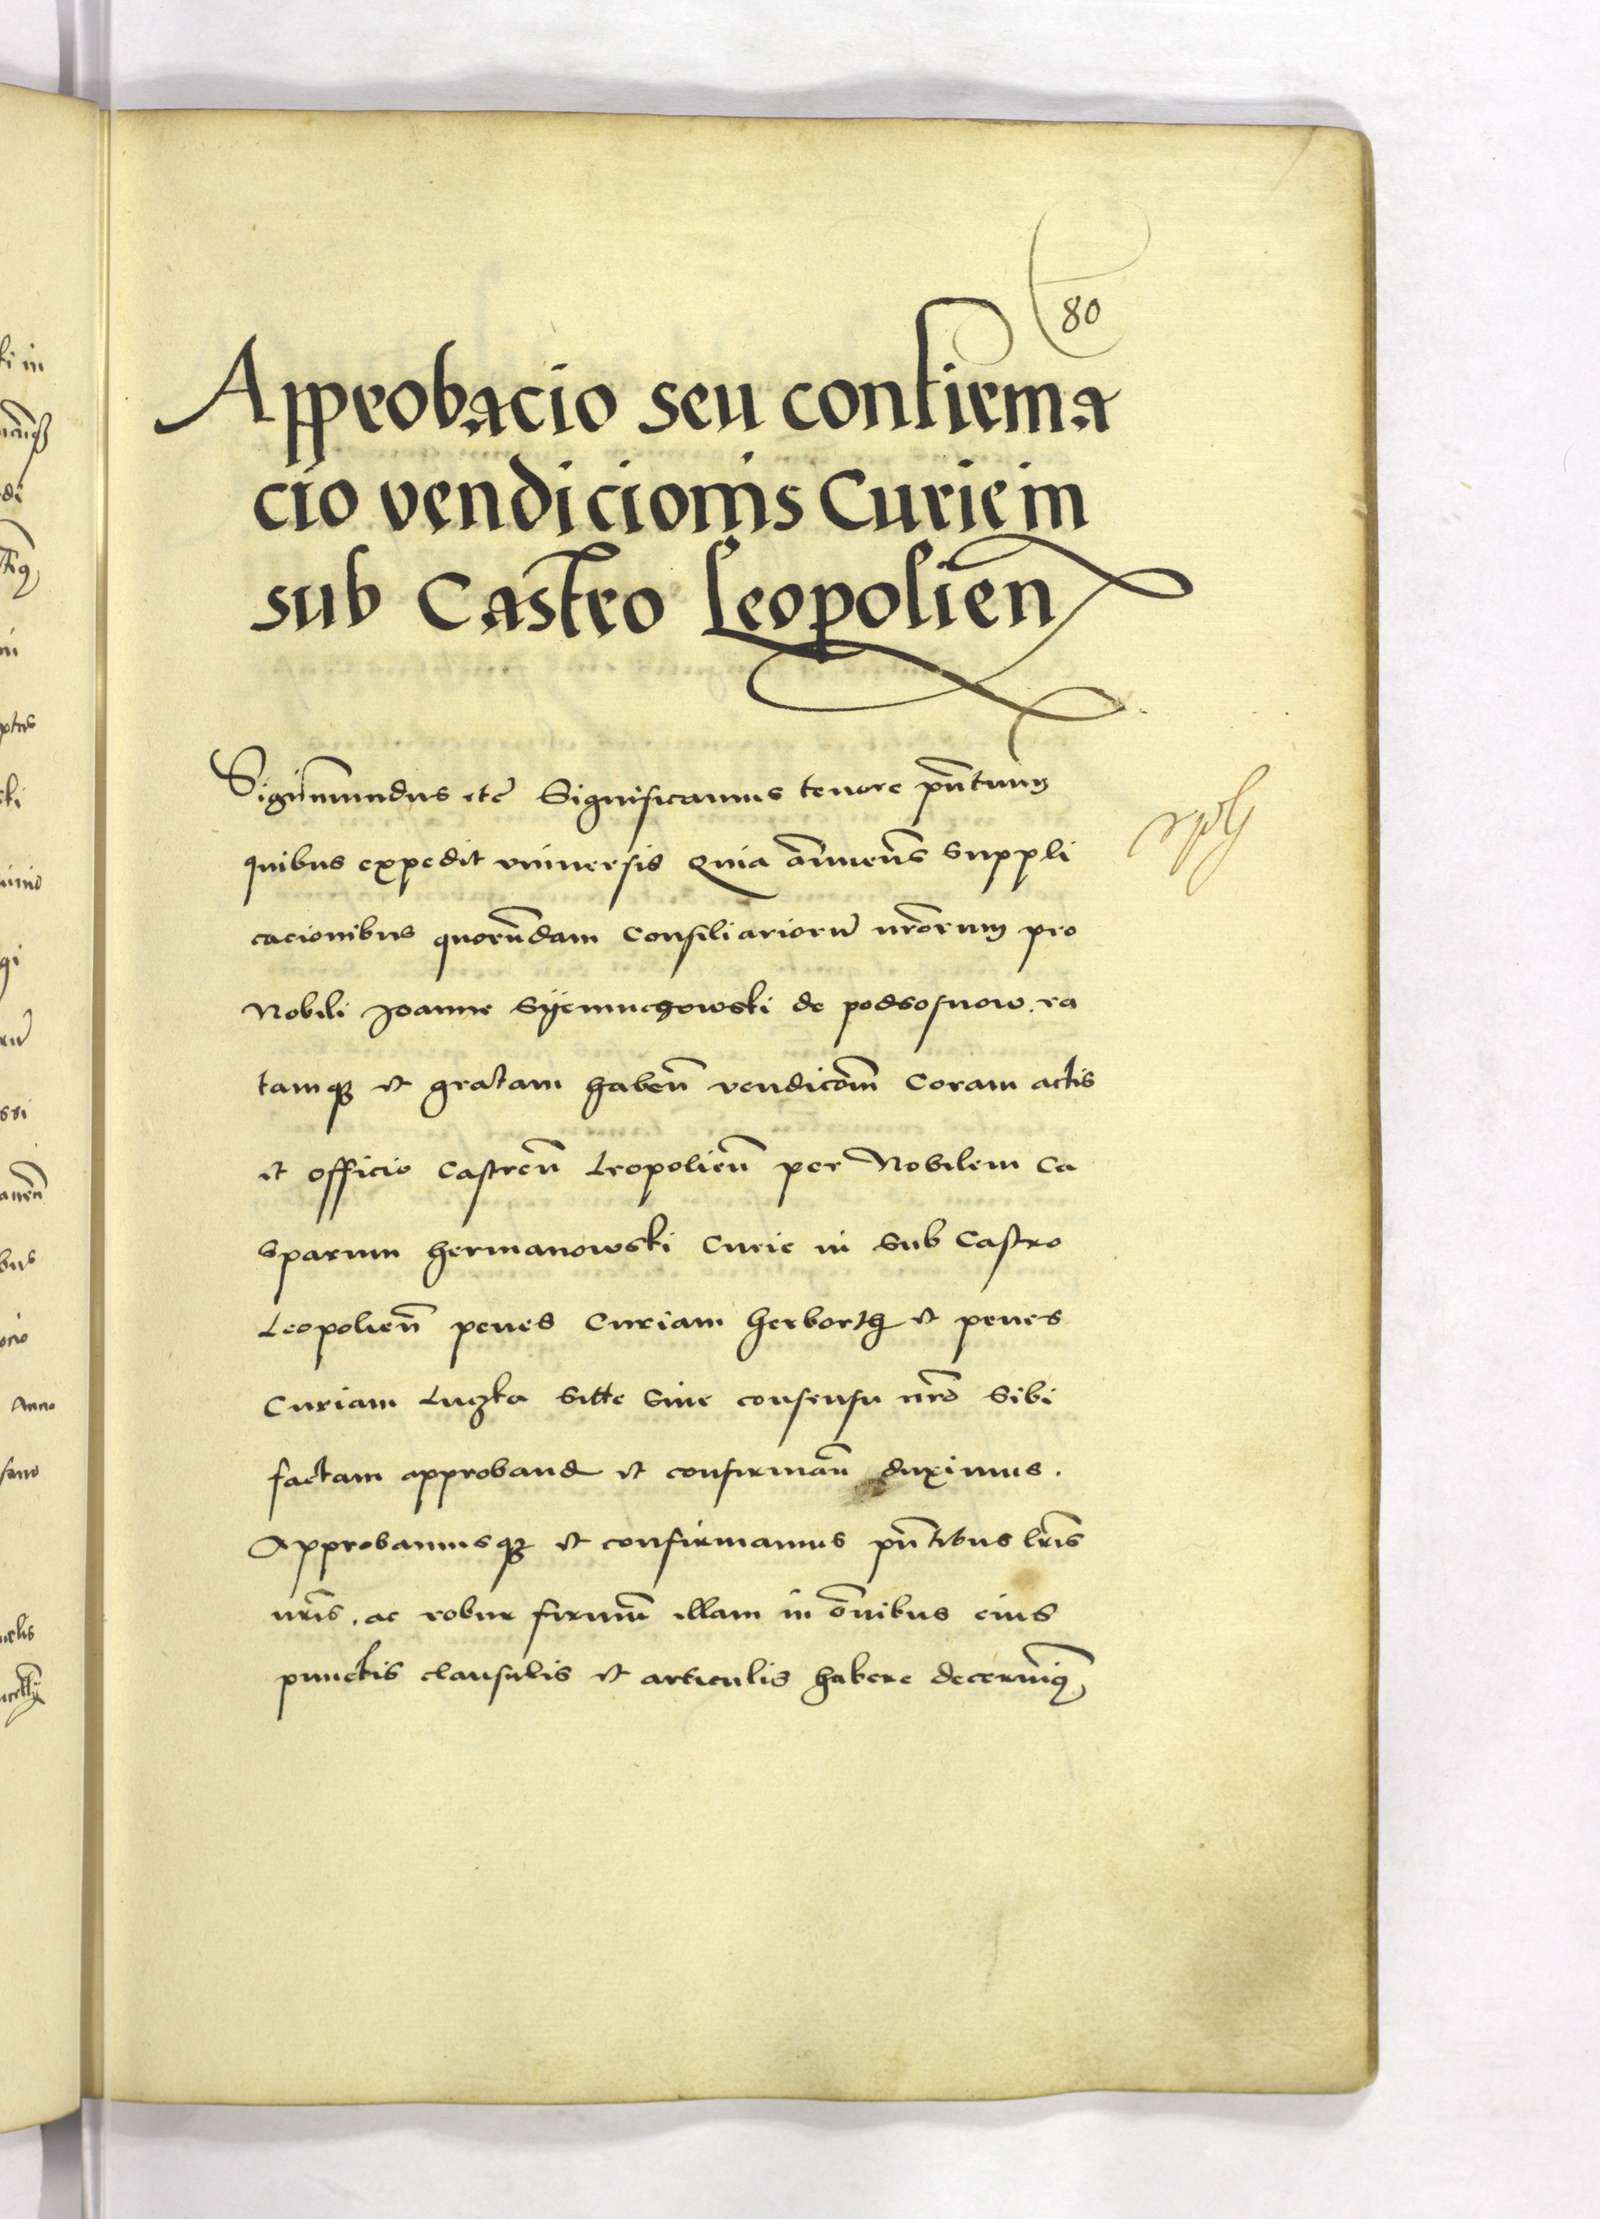 80
Approbacio seu confirma
cio vendicionis Curie in
sub Castro Leopolien
Sigismundus etc Significamus tenore pñtium
quibus expedit vniuersis Quia annuens suppli
cacionibus quorundam Consiliariorũ nrorum pro
Nobili Joanne Syemuchowski de podsosnow. ra
tamqz et gratam haben̄ vendicõm Coram actis
et officio Castren̄ Leopolien̄ per Nobilem Ca
sparum hermanowski Curie in sub Castro
Leopolien̄ penes Curiam herborth et penes
Curiam Luczka Sitte Sine consensu nrõ Sibi
factam approband et confirman̄ duximus.
Approbamusqz et confirmamus pñtibus lris
nris. ac robur firmũ illam in oñibus eius
punctis clausulis et articulis habere decernim9